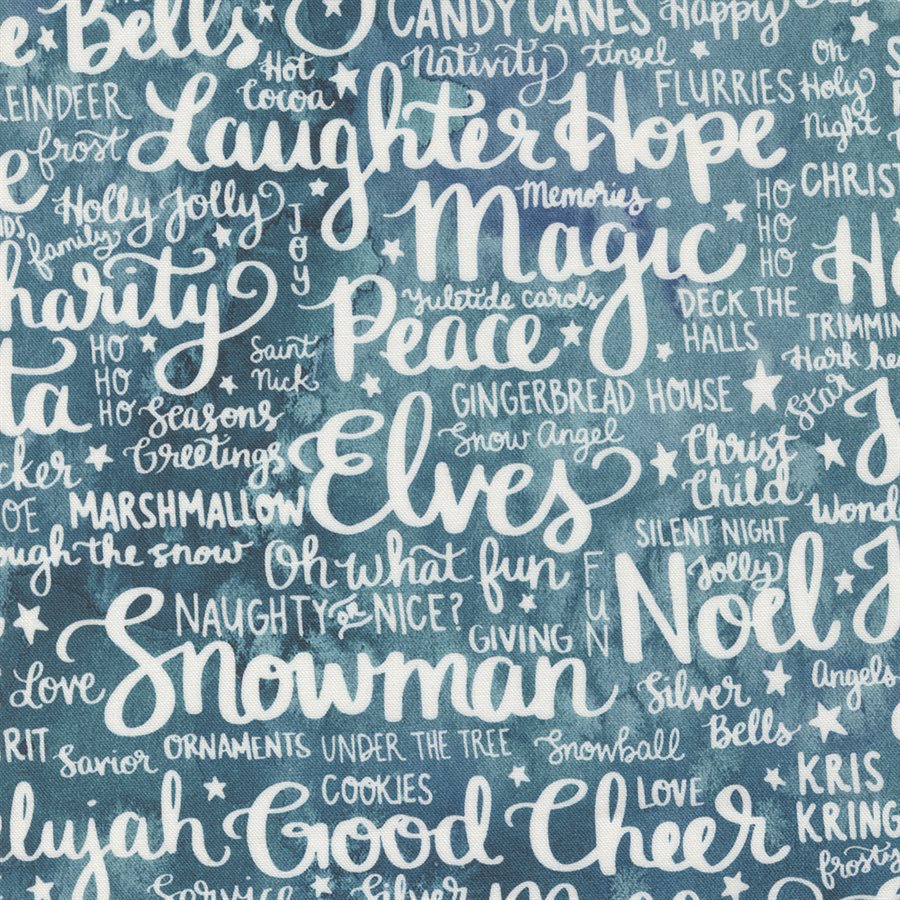 Bells
CANDY CANES
Happy
Nativity
tinsel
Hot
Cocoa
FLURRIES
Oh
Holy
Night
REINDEER
frost
Laughter
Hope
Holly Jolly
family
JOY
Memories
Magic
HO
HO
HO
CHRIST
harity
Peace
Yuletide carols
DECK THE
HALLS
TRIMMIN
Hark he
HO
HO
HO
Saint
Nick
Seasons
Greetings
GINGERBREAD HOUSE
Star
Elves
Snow Angel
Christ
Child
cker
OE
MARSHMALLOW
Wond
ough the snow
Oh what fun
FUN
SILENT NIGHT
Noel
Jolly
NAUGHTY or NICE?
GIVING
Snowman
Love
Silver
Bells
Angels
RIT
Savior
ORNAMENTS
UNDER THE TREE
Snowball
COOKIES
LOVE
KRIS
KRING
lujah
Good Cheer
frosty
Service
Silver